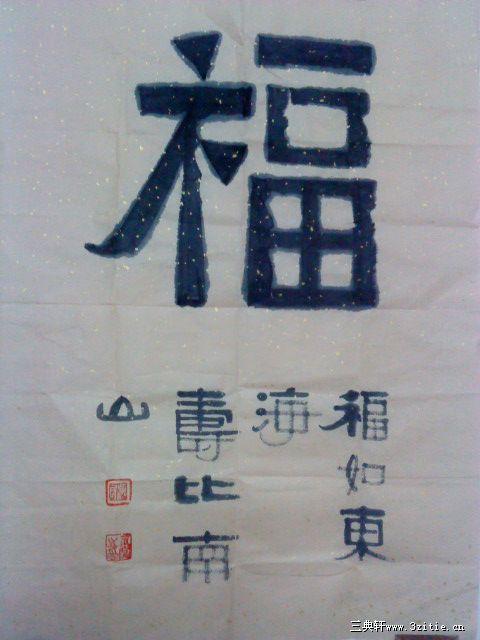 福
福如東
海
壽比南
山
三典轩www.3zitie.cn